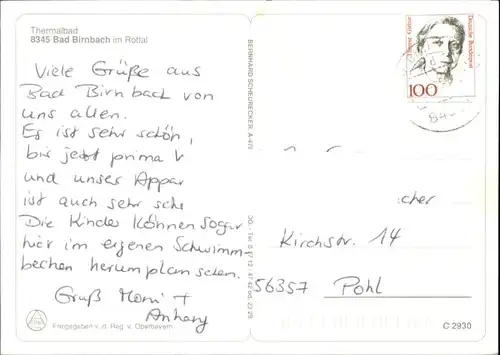 Thermalbad
8345 Bad Birnbach im Rottal
Viele Grüße aus
Bad Birnbach von
uns allen.
Es ist sehr schön,
bis jetzt prima
und unser Appar
ist auch sehr
Die Kinder können sogar
hier im eigenen Schwimm
becken herumplanschen.
Gruß Moni +
Anhang
Freigegeben v. d. Reg. v. Oberbayern
BERNHARD SCHEURECKER, A-478
Deutsche Bundespost
100
cher
Kirchstr. 14
56357 Pohl
C 2930